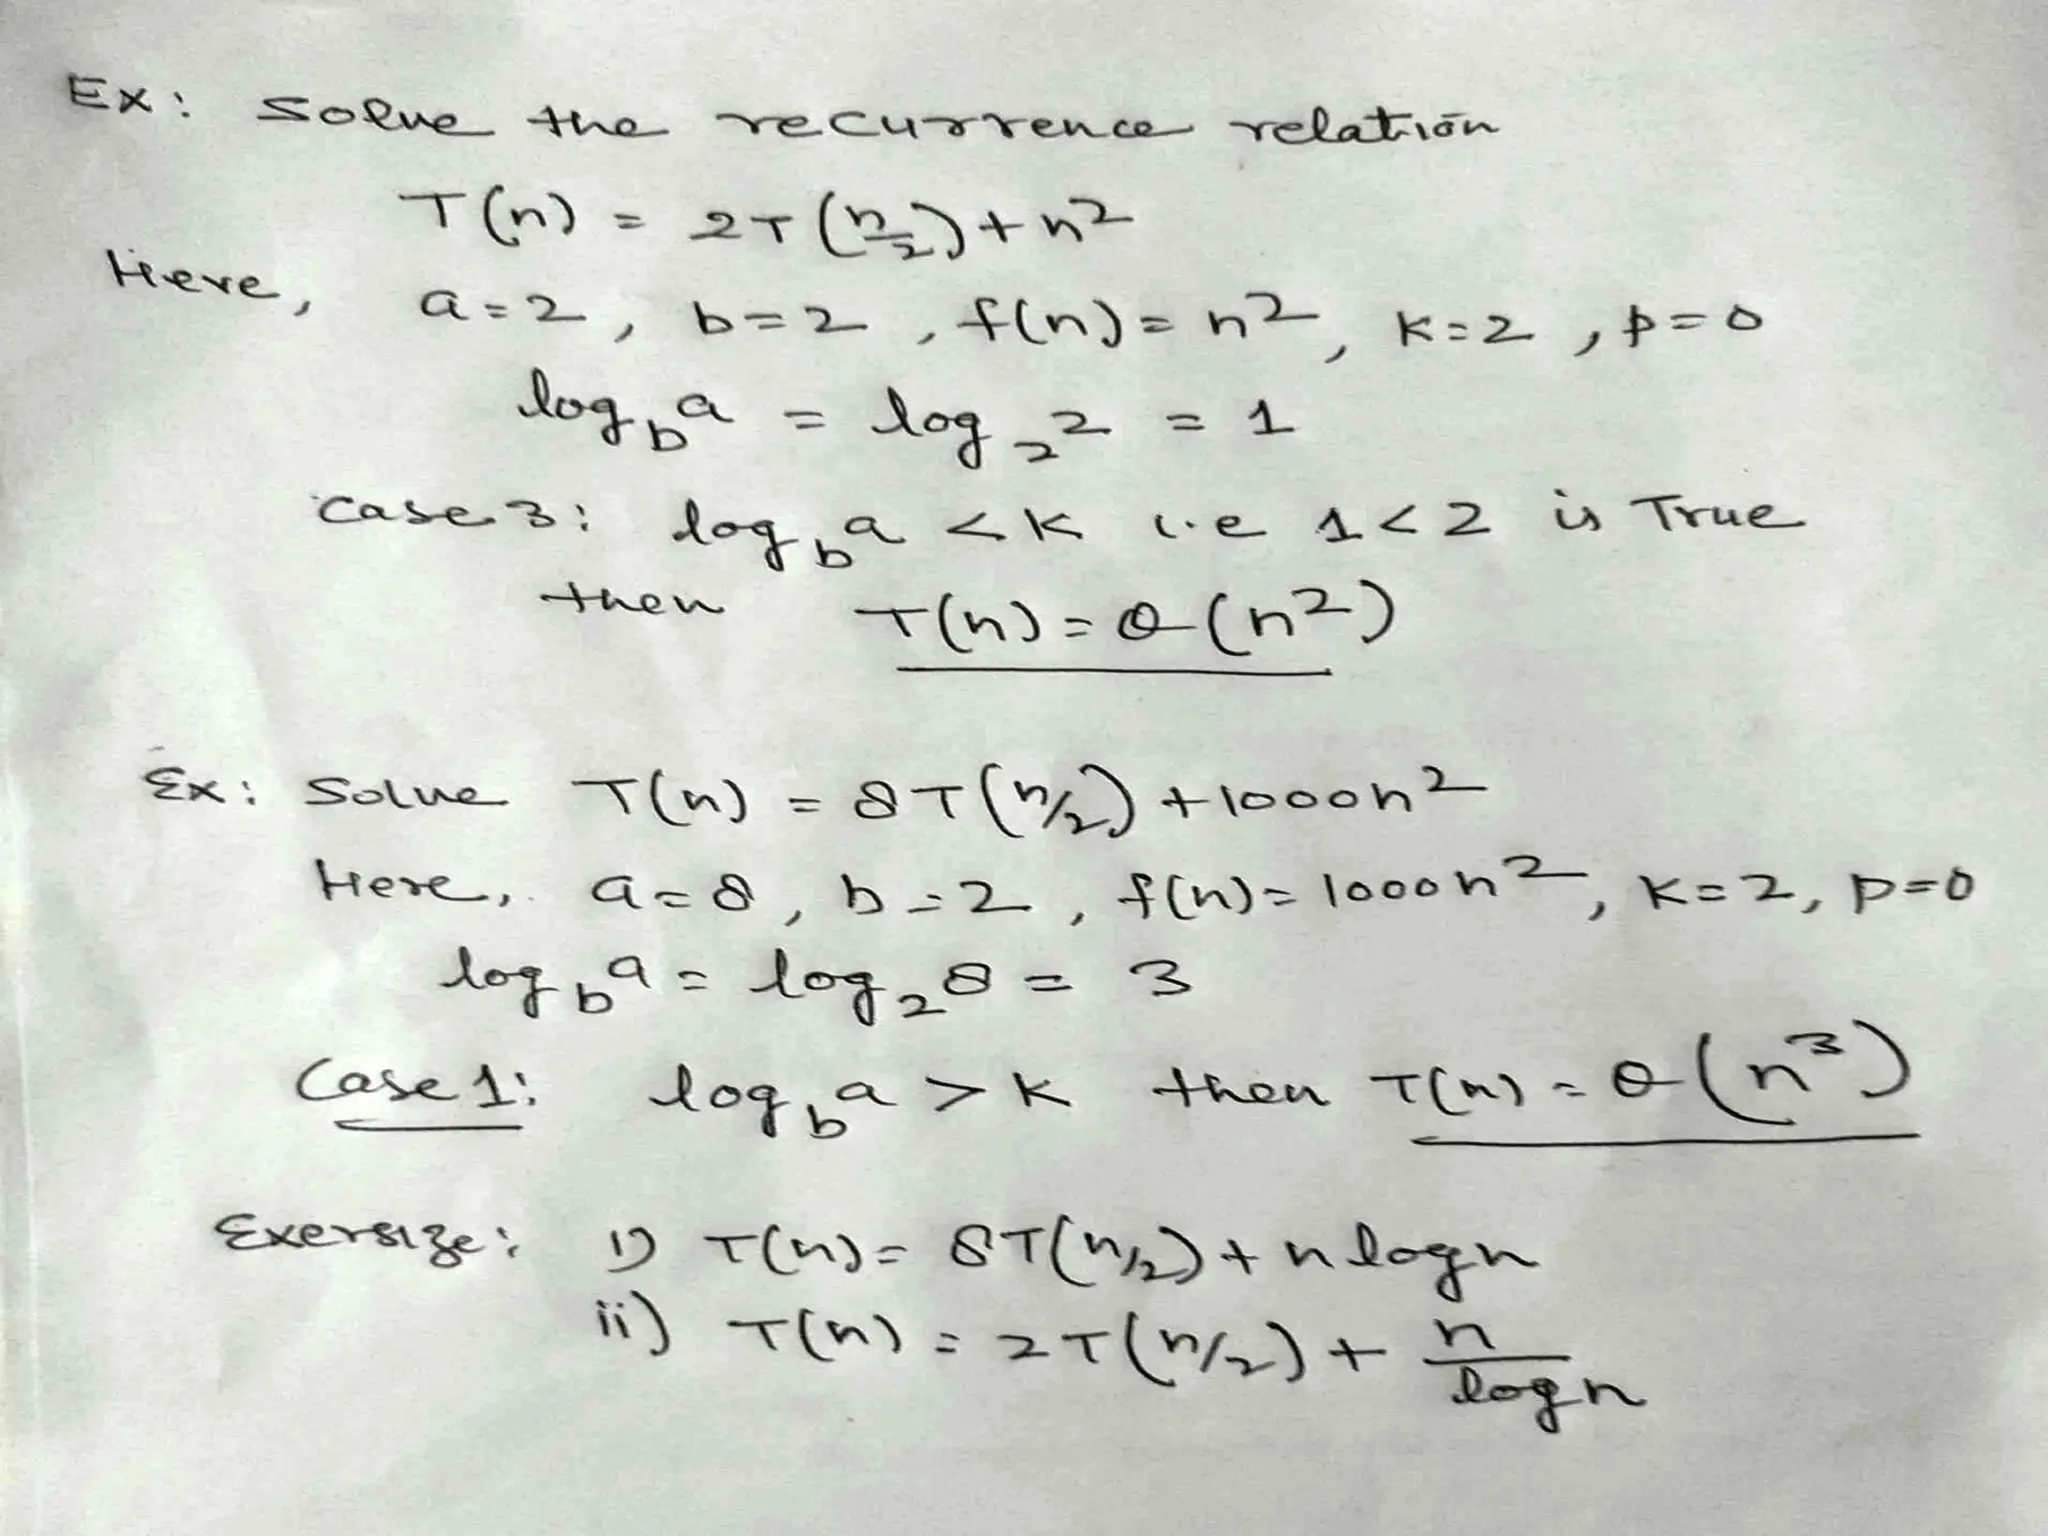 Ex: Solve the recurrence relation
T(n) = 2T(n/2) + n²
Here, a=2, b=2, f(n)=n², K=2, p=0
log_b a = log_2 2 = 1
case 3: log_b a < K i.e 1<2 is True
then T(n) = θ(n²)
Ex: Solve T(n) = 8T(n/2) + 1000n²
Here, a=8, b=2, f(n)=1000n², K=2, p=0
log_b a = log_2 8 = 3
Case 1: log_b a > K then T(n) = θ(n³)
Exersize: i) T(n) = 8T(n/2) + n logn
ii) T(n) = 2T(n/2) + n/logn